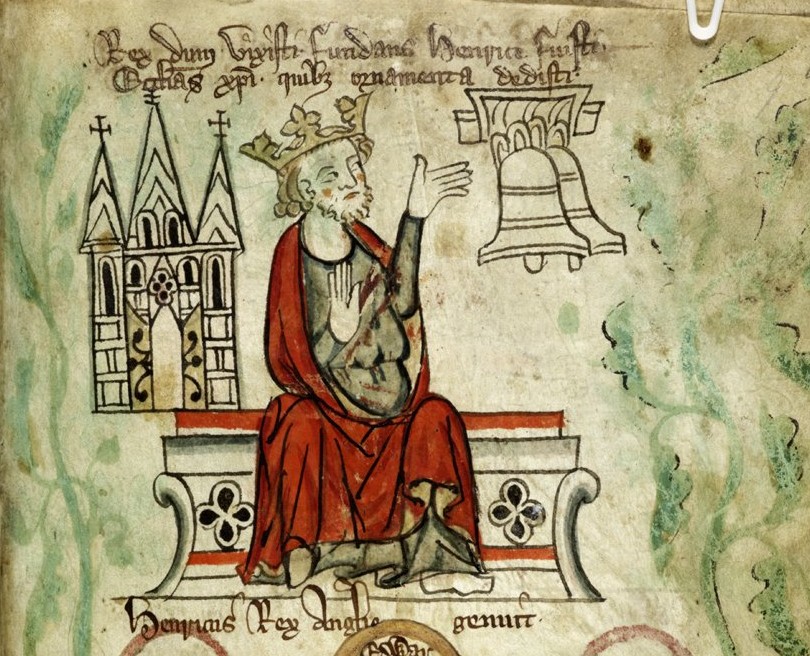 Rex dum vixisti fundans Henrice fuisti.
Ecc̄lias xp̄i. quibꝫ ornamenta dedisti.
Henricus Rex Anglie genuit.
Edwar